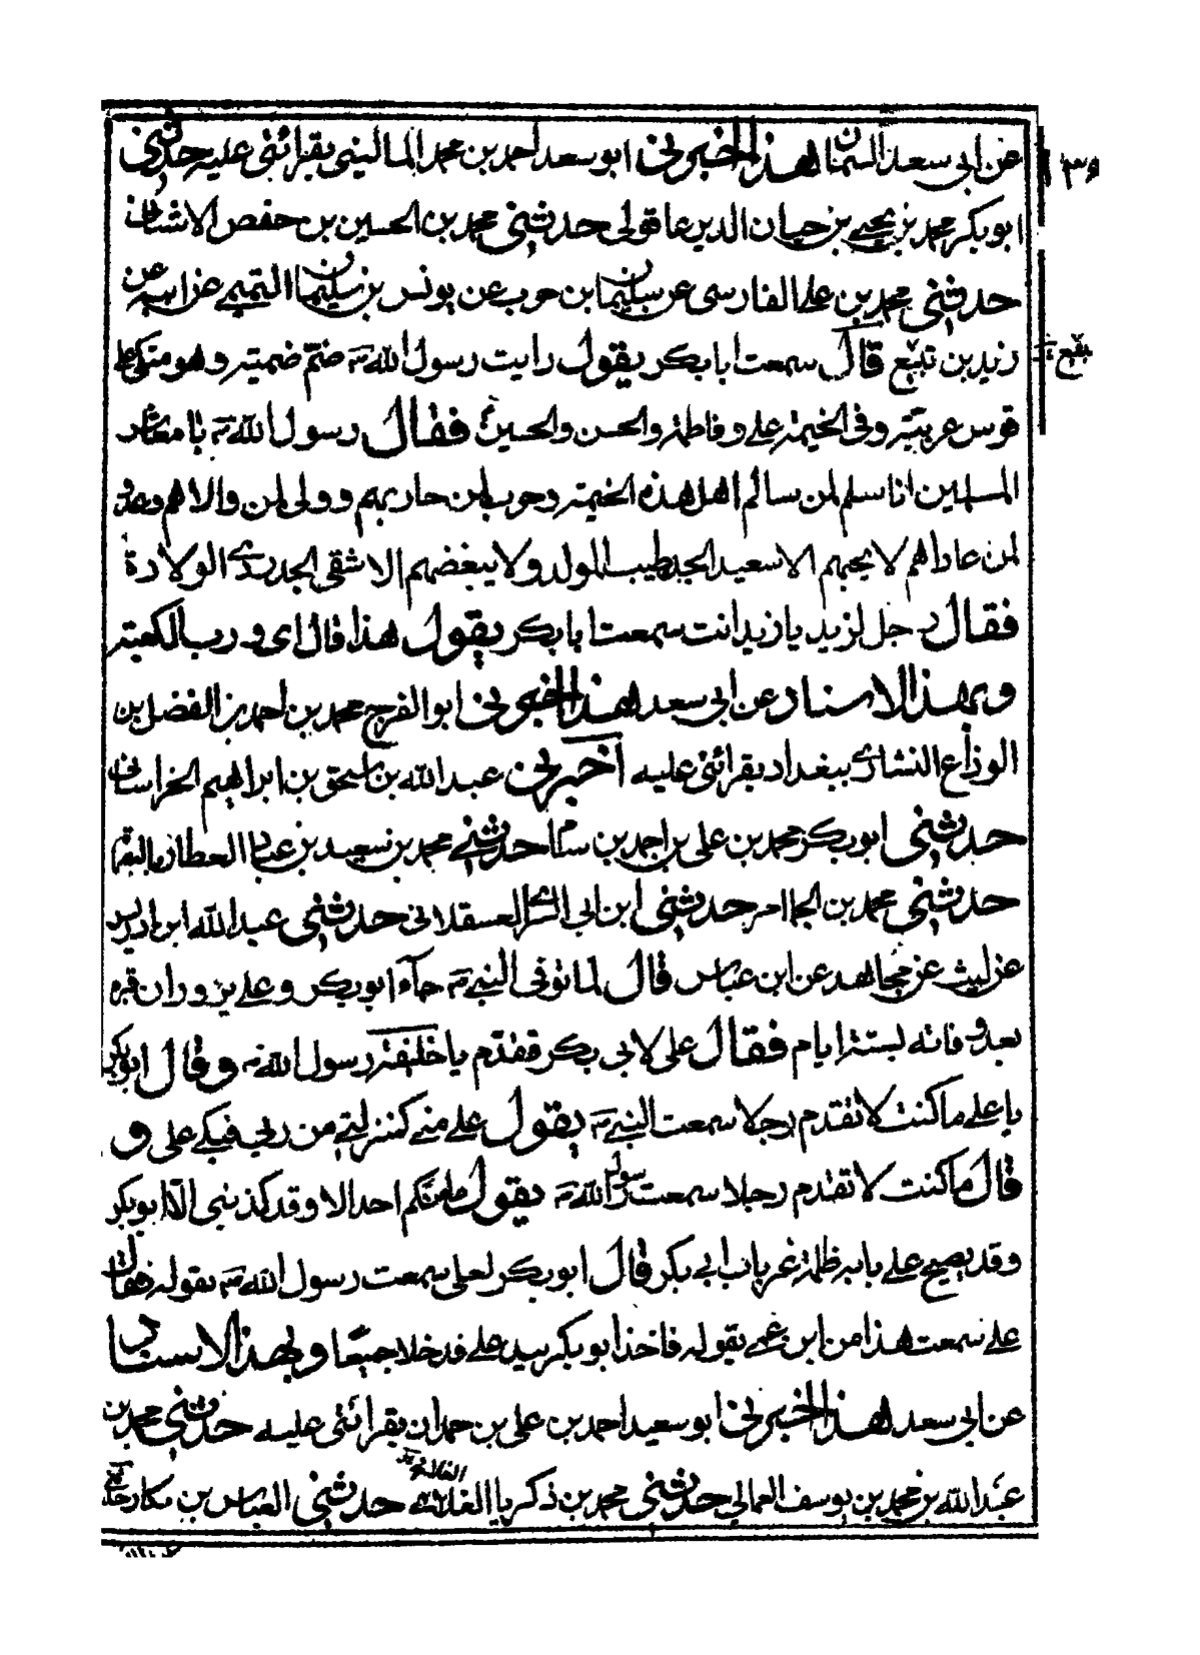 عن ابى سعد السمان هذا اخبرنى ابو سعد احمد بن محمد المالينى بقرائتى عليه حدثنى
ابو بكر محمد بن يحيى بن حيان الدير عاقولى حدثنى محمد بن الحسين بن حفص الاشنانى
حدثنى محمد بن على الفارسى عن سليمان بن حرب عن يونس بن سليمان التميمى عن ابيه عن
زيد بن تبيع قال سمعت ابا بكر يقول رايت رسول الله ص خيم خيمة وهو متكى على
يثيع
٣٥
قوس عربية وفى الخيمة على وفاطمة والحسن والحسين فقال رسول الله ص يا معاشر
المسلمين انا سلم لمن سالم اهل هذه الخيمة وحرب لمن حاربهم وولى لمن والاهم وعدو
لمن عاداهم لا يحبهم الا سعيد الجد طيب المولد ولا يبغضهم الا شقى الجد ردى الولادة
فقال رجل لزيد يا زيد انت سمعت ابا بكر يقول هذا قال اى ورب الكعبة
وبهذا الاسناد عن ابى سعد هذا اخبرنى ابو الفرج محمد بن احمد بن الفضل بن
ببغداد بقرائتى عليه اخبرنى عبد الله بن اسحق بن ابراهيم الخراسانى
حدثنى ابو بكر محمد بن على بن احمد بن سام حدثنى محمد بن سعيد بن العطار
حدثنى محمد بن حدثنى ابن ابى السرى العسقلانى حدثنى عبد الله ابن ادريس
عن ليث عن مجاهد عن ابن عباس قال لما توفى النبى ص جاء ابو بكر وعلى يزوران قبره
بعد وفاته بستة ايام فقال على لابى بكر تقدم يا خليفة رسول الله ص وقال ابو بكر
يا على ما كنت لاتقدم رجلا سمعت النبى ص يقول على منى كمنزلتى من ربى فبكى على و
قال ما كنت لاتقدم رجلا سمعت رسول الله ص يقول ما منكم احد الا وقد كذبنى الا ابو بكر
وقد يصبح على بابه ظلمة غير باب ابى بكر قال ابو بكر لعلى سمعت رسول الله ص يقوله فقال
على سمعت هذا من ابن عمى يقوله فاخذ ابو بكر بيد على فدخلا جميعا وبهذا الاسناد
عن ابى سعد هذا اخبرنى ابو سعيد احمد بن على بن حمدان بقرائتى عليه حدثنى محمد بن
عبد الله بن محمد بن يوسف العمانى حدثنى محمد بن ذكريا الغلابى حدثنى العباس بن بكار